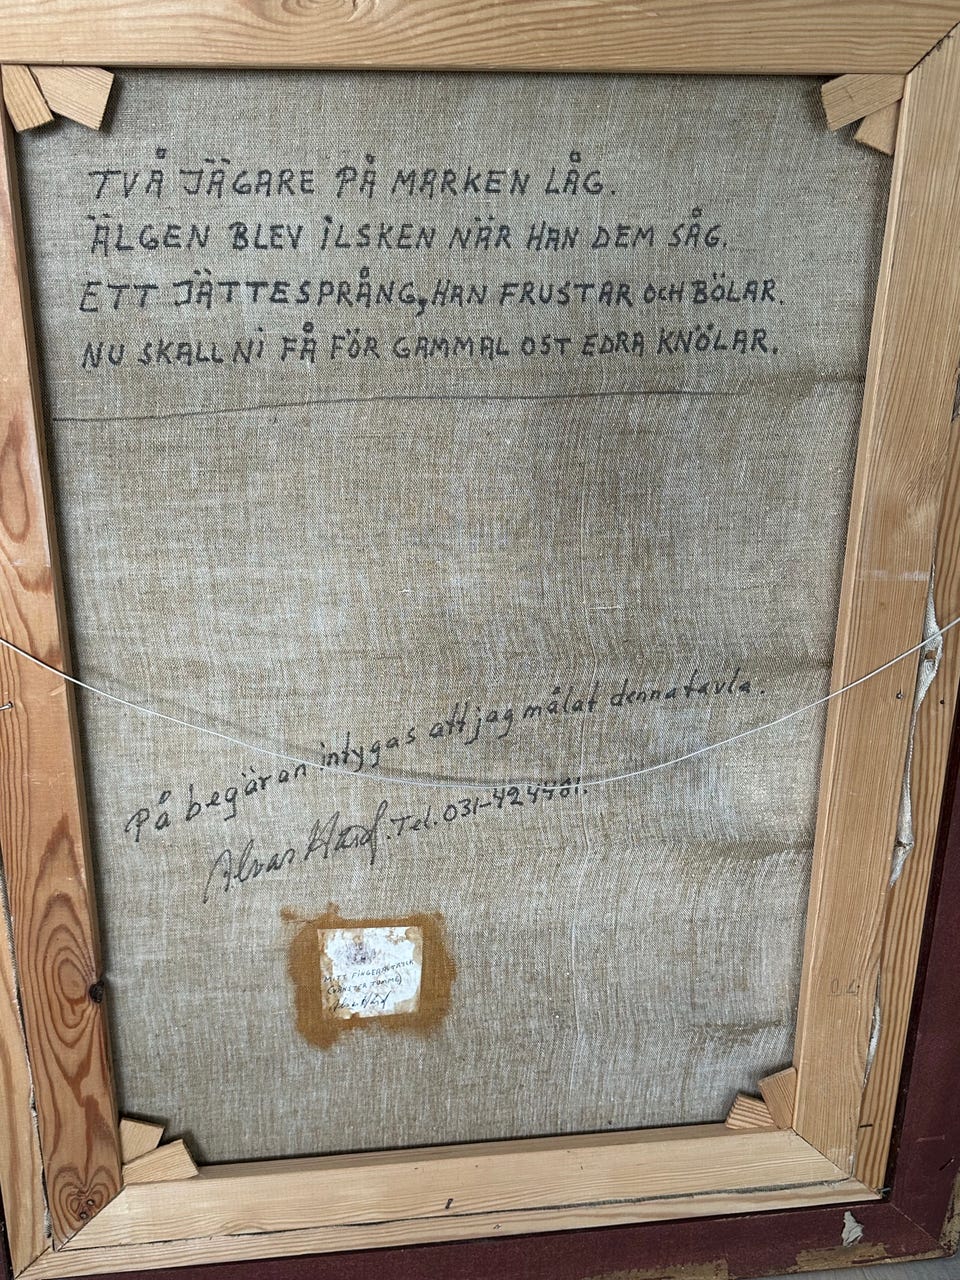 TVÅ JÄGARE PÅ MARKEN LÅG.
ÄLGEN BLEV ILSKEN NÄR HAN DEM SÅG.
ETT JÄTTESPRÅNG, HAN FRUSTAR OCH BÖLAR.
NU SKALL NI FÅ FÖR GAMMAL OST EDRA KNÖLAR.
På begäran intygas att jag målat denna tavla.
Alvar Hård. Tel. 031-424481.
MITT FINGERAVTRYCK
(VÄNSTER TUMME)
Alvar Hård